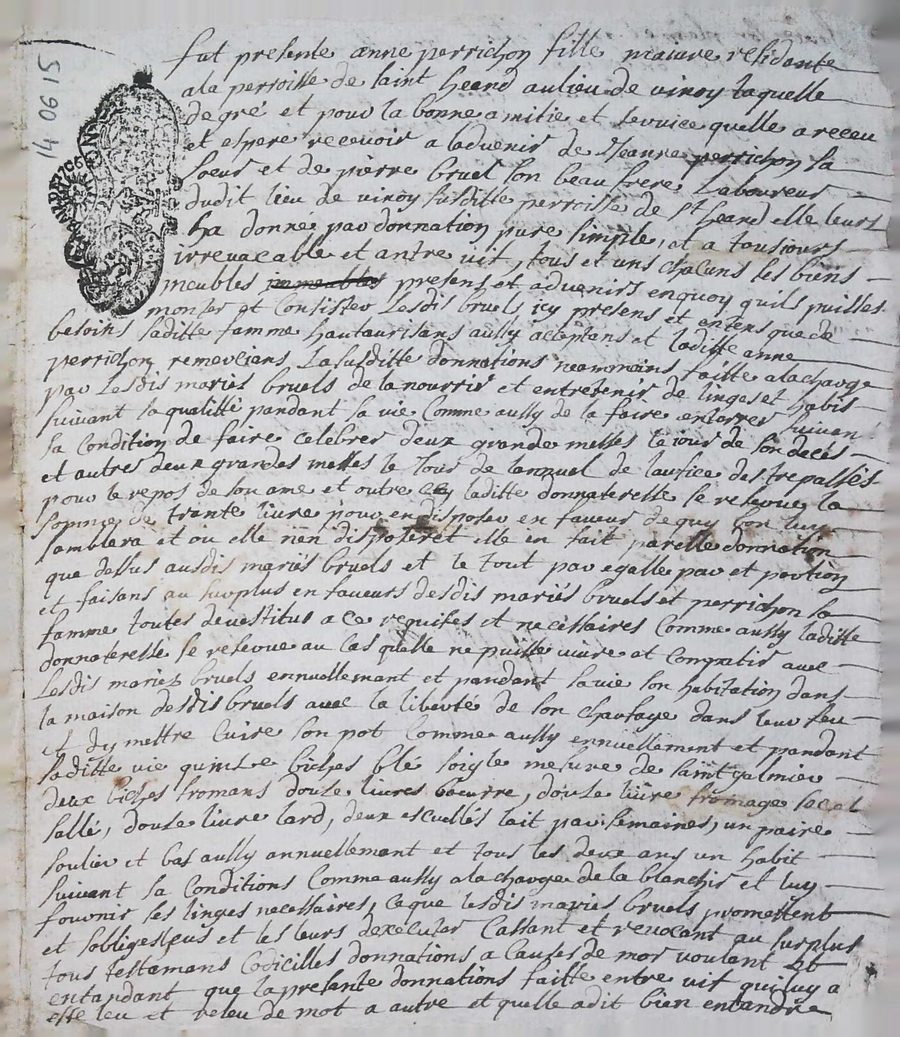 14 06 15
fut presente anne perrichon fille majure residante
a la perroisse de saint heand au lieu de vinoy laquelle
de gré et pour la bonne amitie et service quelle a receu
et espere recevoir a ladvenir de Jeanne perrichon sa
soeur et de pierre bruel son beau frere Laboureur
dudit lieu de vinoy susditte perroisse de st heand elle leurs
ha donné par donnation pure simple, et a tousjours
irrevacable et antre vif, tous et uns chacuns les biens
meubles immeables presens et advenirs en quoy quils puisses
monter et Consister Lesdis bruels icy presens et
besoins saditte famme hautaurisans aussy acceptens et laditte anne
perrichon remercians La susditte donnations neammoins faitte a la charge
par Lesdis mariés bruels de la nourrir et entretenir de linges et habis
suivant sa qualitté pandant sa vie Comme aussy de la faire enterrer suivan
sa Condition de faire Celebrer deux grande messes le jour de son decés
et autres deux grandes messes le Jour de lannuel de laufice des trepassés
pour le repos de son ame et outre Cey laditte donnaterelle se reserve la
somme de trante livre pour en disposer en faveur de quy bon luy
samblera et ou elle n'en disposeret elle en fait parelle donnation
que dessus ausdis mariés bruels et le tout par egalle par et portion
et faisans au surplus en faveurs desdis mariés bruels et perrichon sa
famme toutes devestitus a ce requises et necessaires Comme aussy laditte
donnaterelle se reserve au Cas quelle ne puisse vivre et Compatir avec
Lesdis mariez bruels ennuellement et pandant sa vie son habitation dans
la maison desdis bruels avec la liberté de son chaufage dans leur feu
et dy mettre Cuire son pot Comme aussy ennuellement et pandant
saditte vie quinse biches blé soigle mesure de saint galmier
deux biches fromans douse livres beurre, douse livre fromage sec et
sallé, douse livre lard, deux escuelles lait par semaines, un paire
soulier et bas aussy annuellement et tous les deux ans un habit
suivant sa Conditions Comme aussy a la charge de la blanchir et luy
fournir les linges necessaires, Ce que lesdis mariés bruels promettent
et sobliges eus et les leurs dexecuter Cassant et revocant au surplus
tous testamans Codicilles donnations a Causes de mor voulant et
entandant que la presante donnations faitte entre vif quy luy a
esté leu et releu de mot a autre et quelle a dit bien entandre